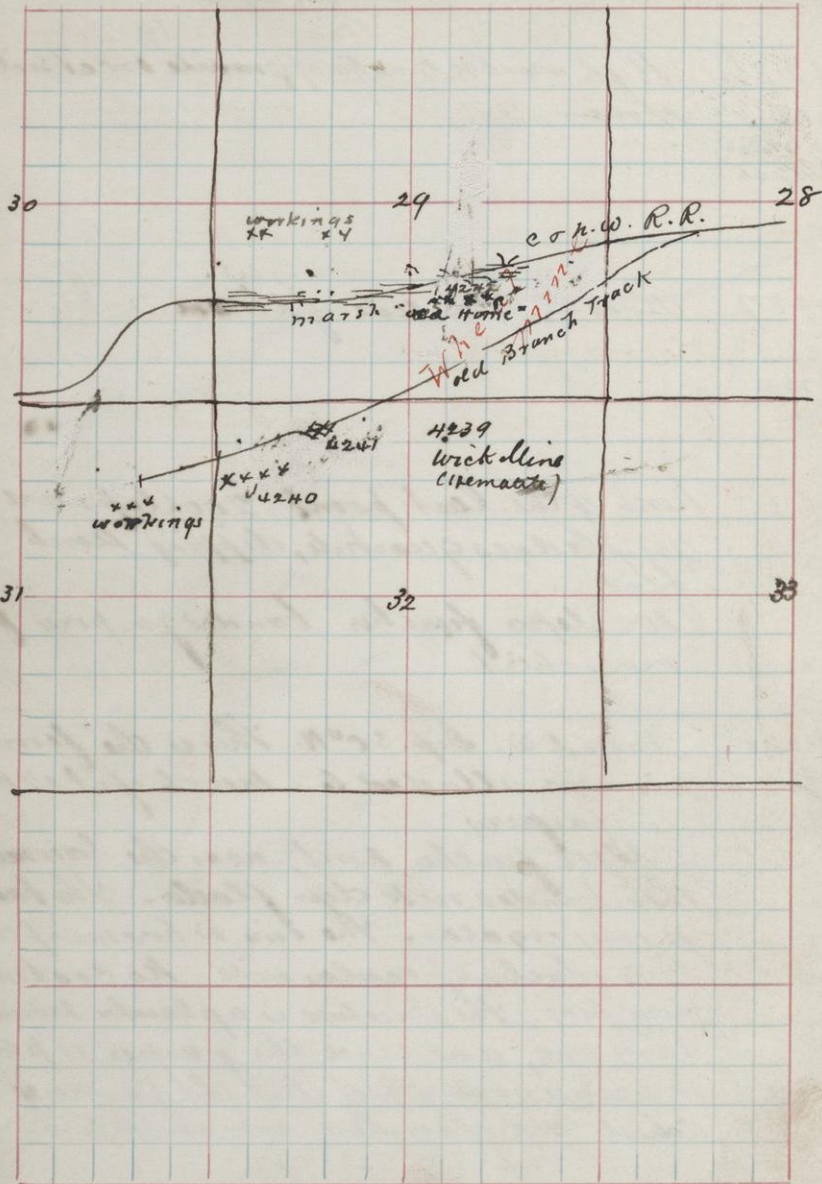 30
29
28
workings
C & N.W. R.R.
4242
marsh
"Old Home"
Wheat Mine
Old Branch Track
4241
4239
Wick Mine
(Hematite)
4240
workings
31
32
33